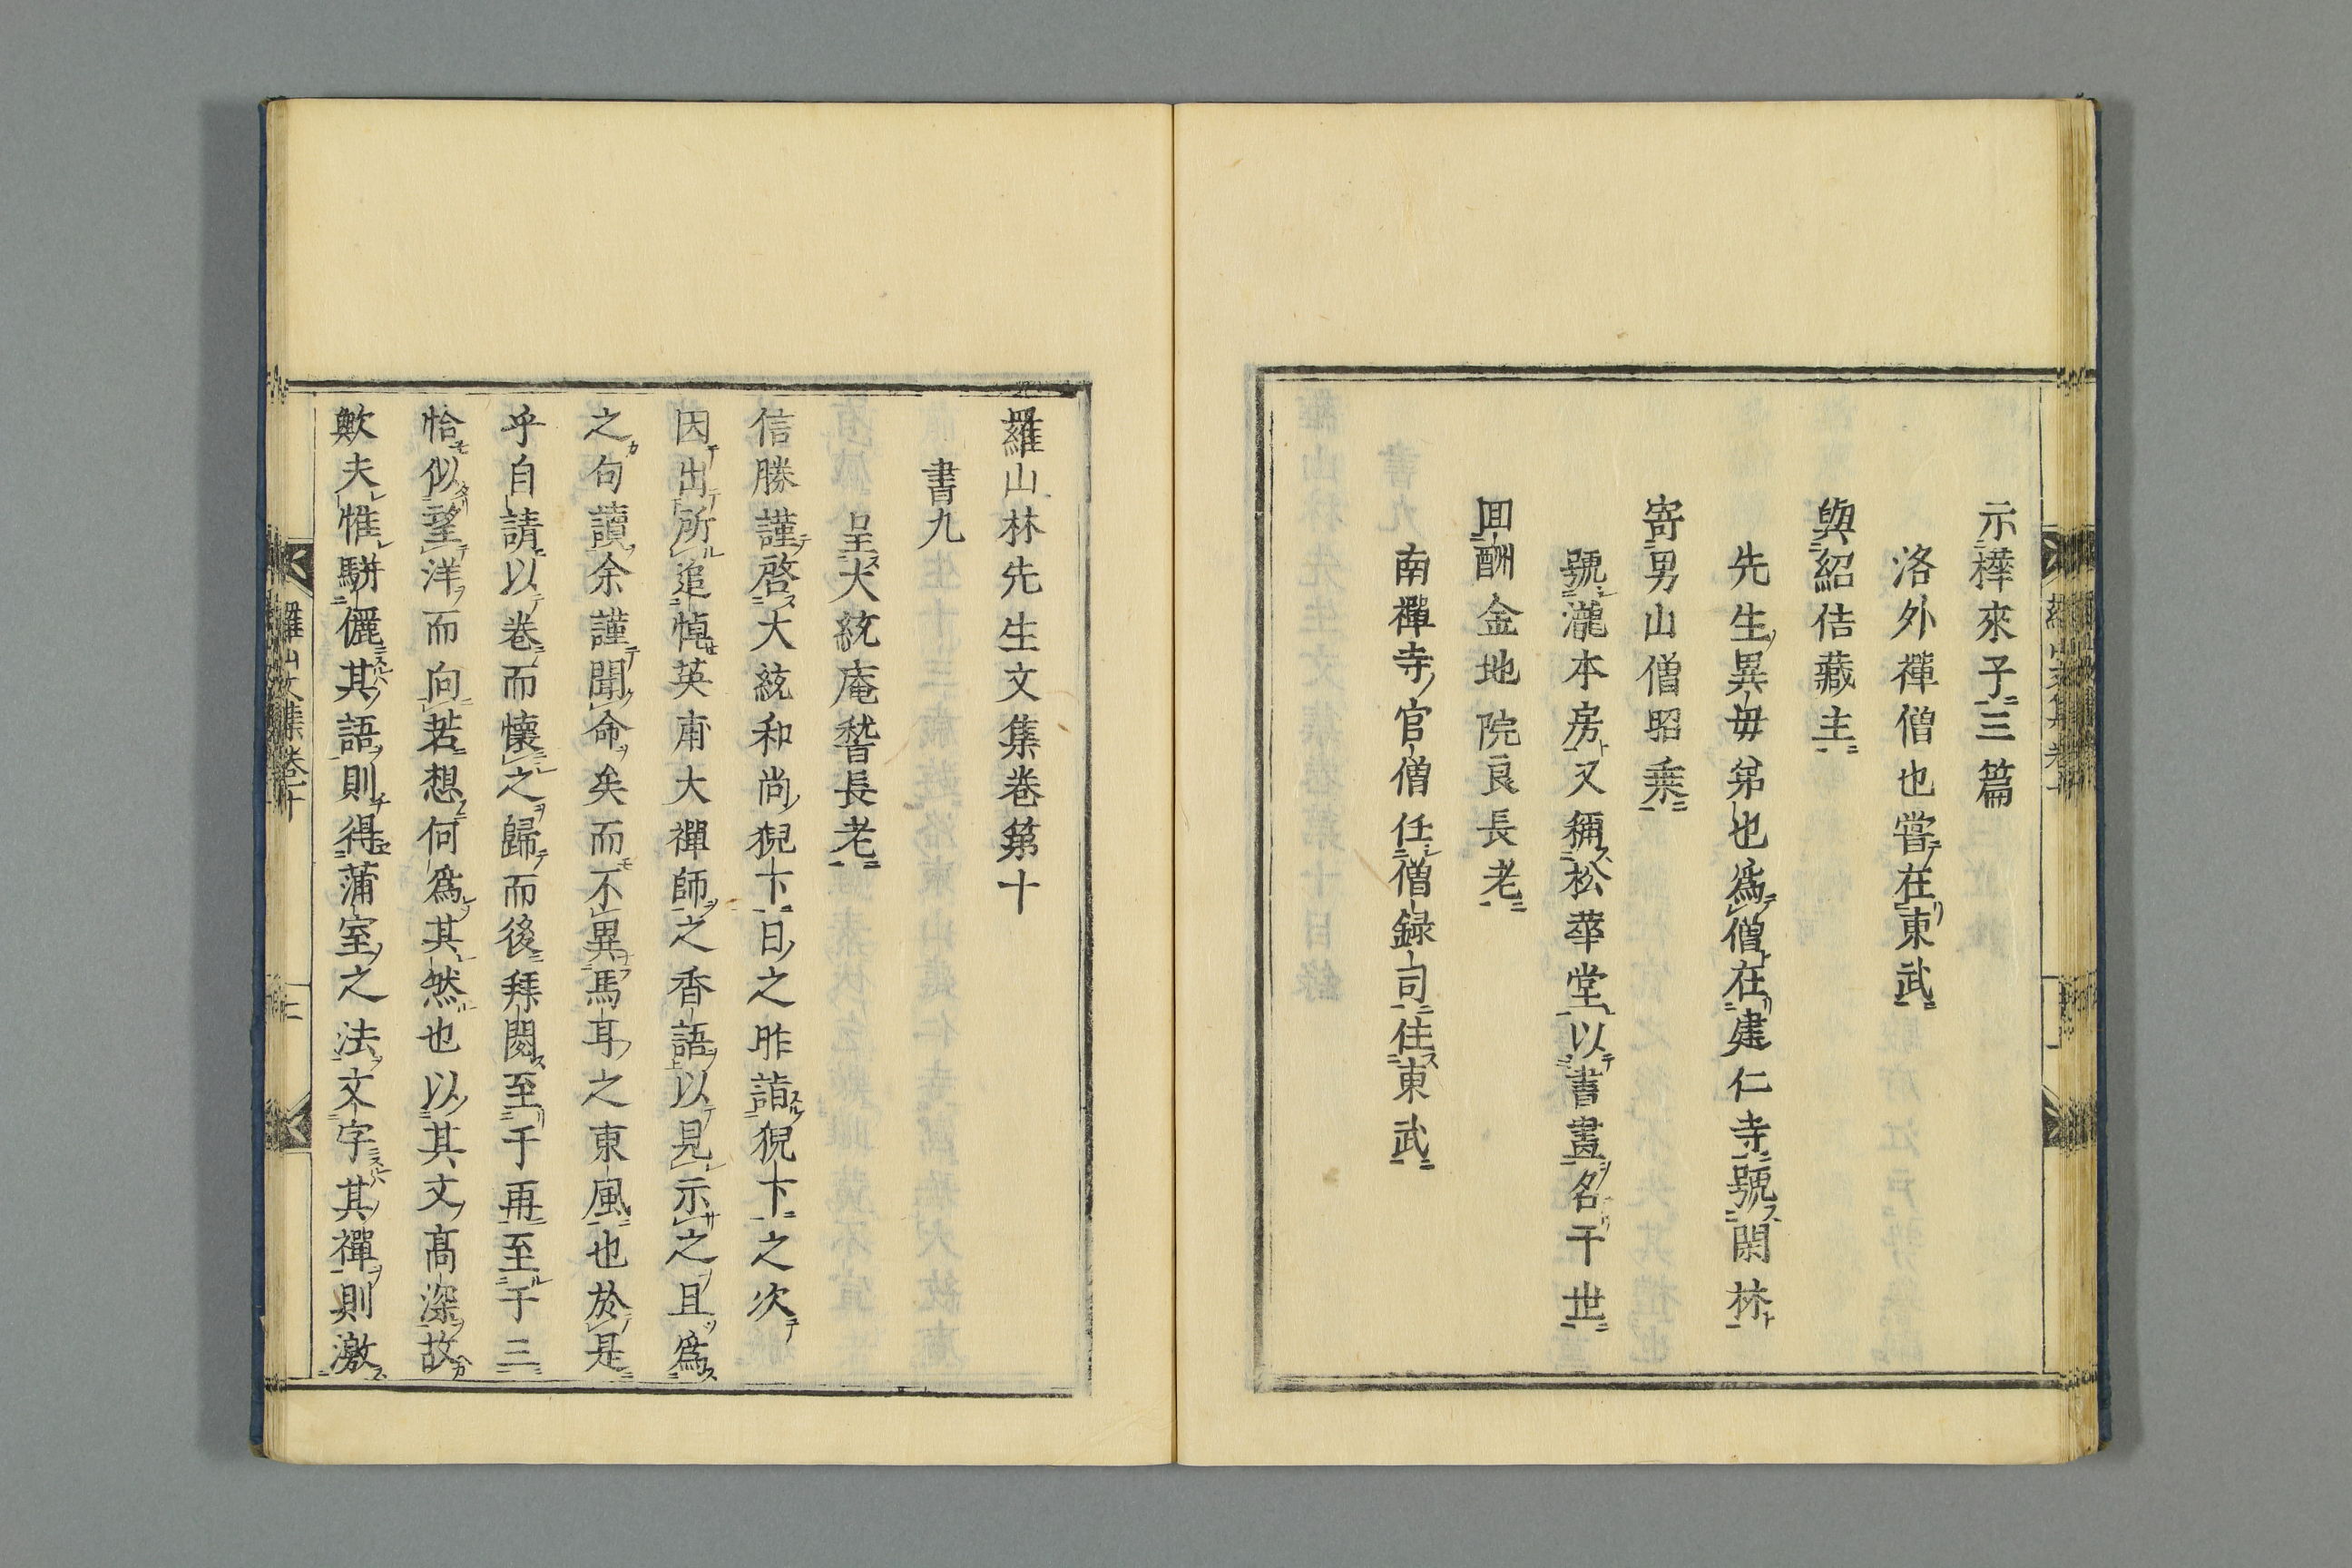 示樺來子三篇
洛外禪僧也嘗在東武
與紹佶藏主
先生異毋弟也爲僧在建仁寺號閑林
寄男山僧昭乗
號瀧本房又稱松華堂以書畫名于世
回酬金地院良長老
南禪寺官僧任僧録司住東武
羅山林先生文集卷第十
書九
呈大統庵
長老
信勝謹啓大統和尚猊下日之昨詣猊下之次
因出所追悼英甫大禪師之香語以見示之且爲
之句讀余謹聞命矣而不異馬耳之東風也於是
乎自請以卷而懷之歸而後拜閲至于再至于三
恰似望洋而向若想何爲其然也以其文高深故
歟夫惟駢儷其語則得蒲室之法文字其禪則激
羅山文集卷十
二